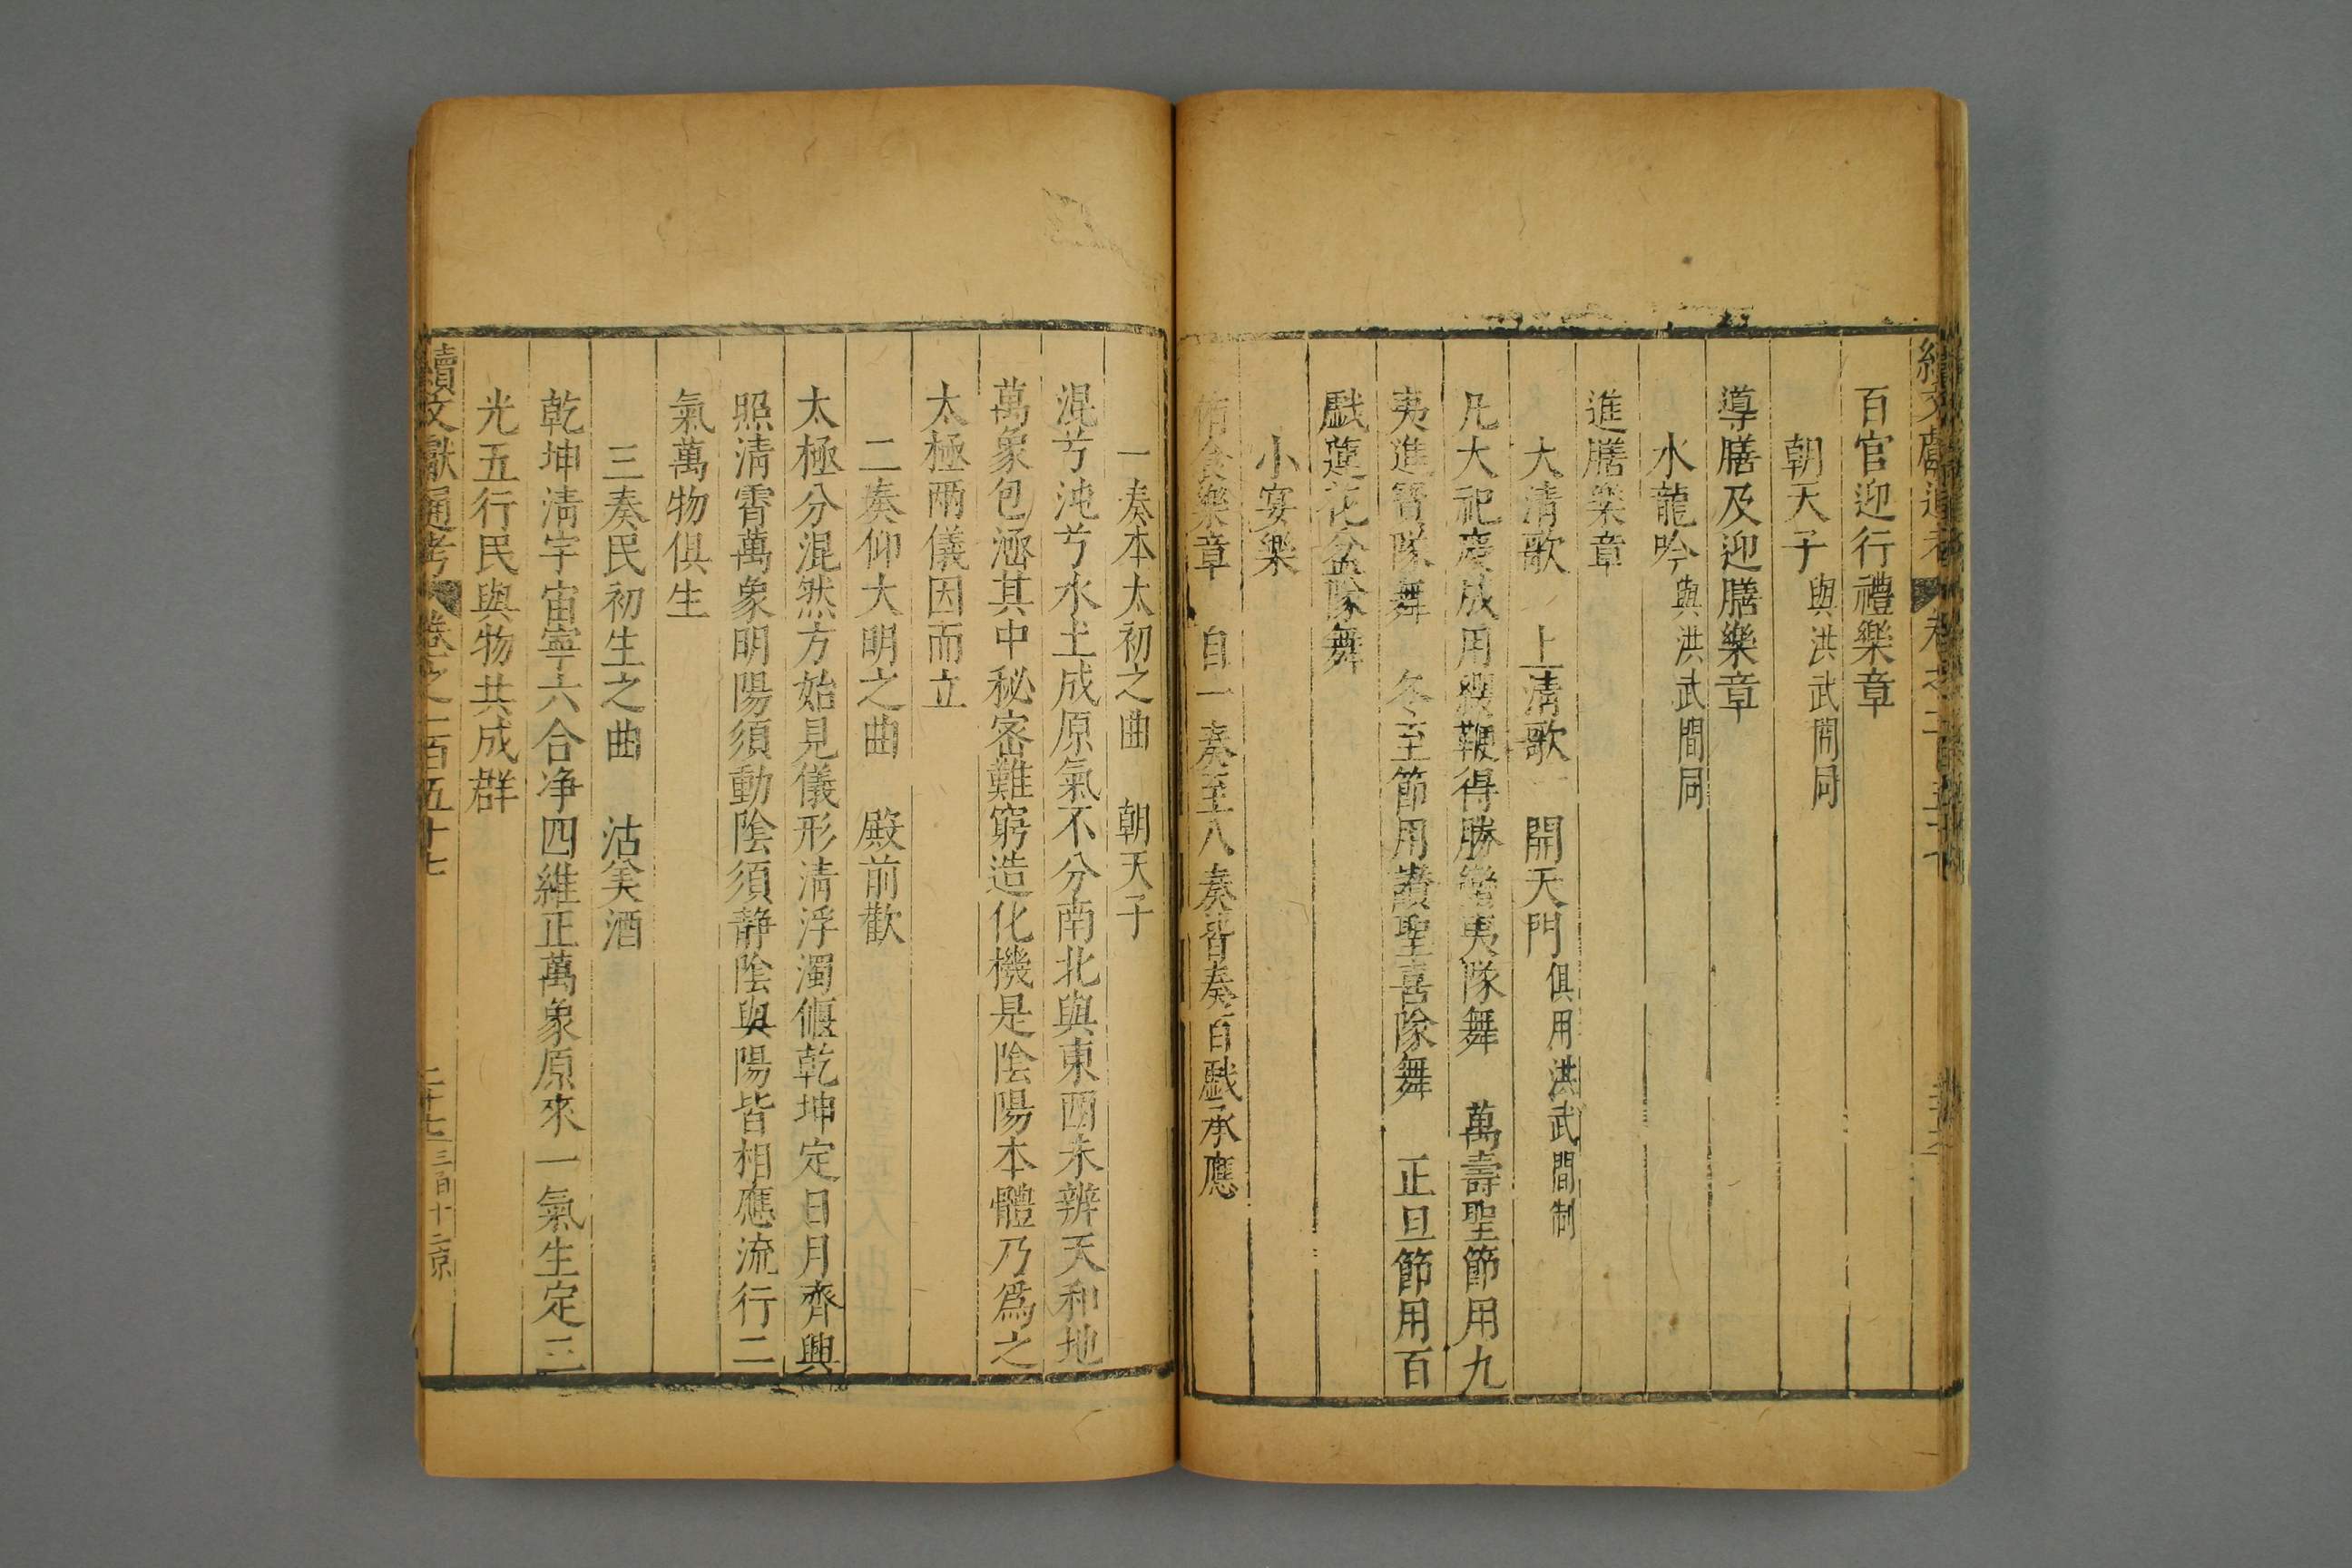 續文獻通考 卷之二百五十七
百官迎行禮樂章
朝天子與洪武間同
導膳及迎膳樂章
水龍吟與洪武間同
進膳樂章
大清歌 上清歌 開天門俱用洪武間制
凡大祀慶成用纓鞭得勝蠻夷隊舞 萬壽聖節用九
夷進寳隊舞 冬至節用讚聖喜隊舞 正旦節用百
戯蓮花盆隊舞
小宴樂
侑食樂章 自一奏至八奏皆奏百戯承應
一奏本太初之曲 朝天子
混兮沌兮水土成原氣不分南北與東西未辨天和地
萬象包涵其中秘密難窮造化機是陰陽本體乃爲之
太極兩儀因而立
二奏仰大明之曲 殿前歡
太極分混然方始見儀形清浮濁偃乾坤定日月齊興
照清霄萬象明陽須動陰須静陰與陽皆相應流行二
氣萬物俱生
三奏民初生之曲 沽美酒
乾坤清宇宙寧六合净四維正萬象原來一氣生定三
光五行民與物共成群
續文獻通考 卷之二百五十七 二十七 三百十二 京